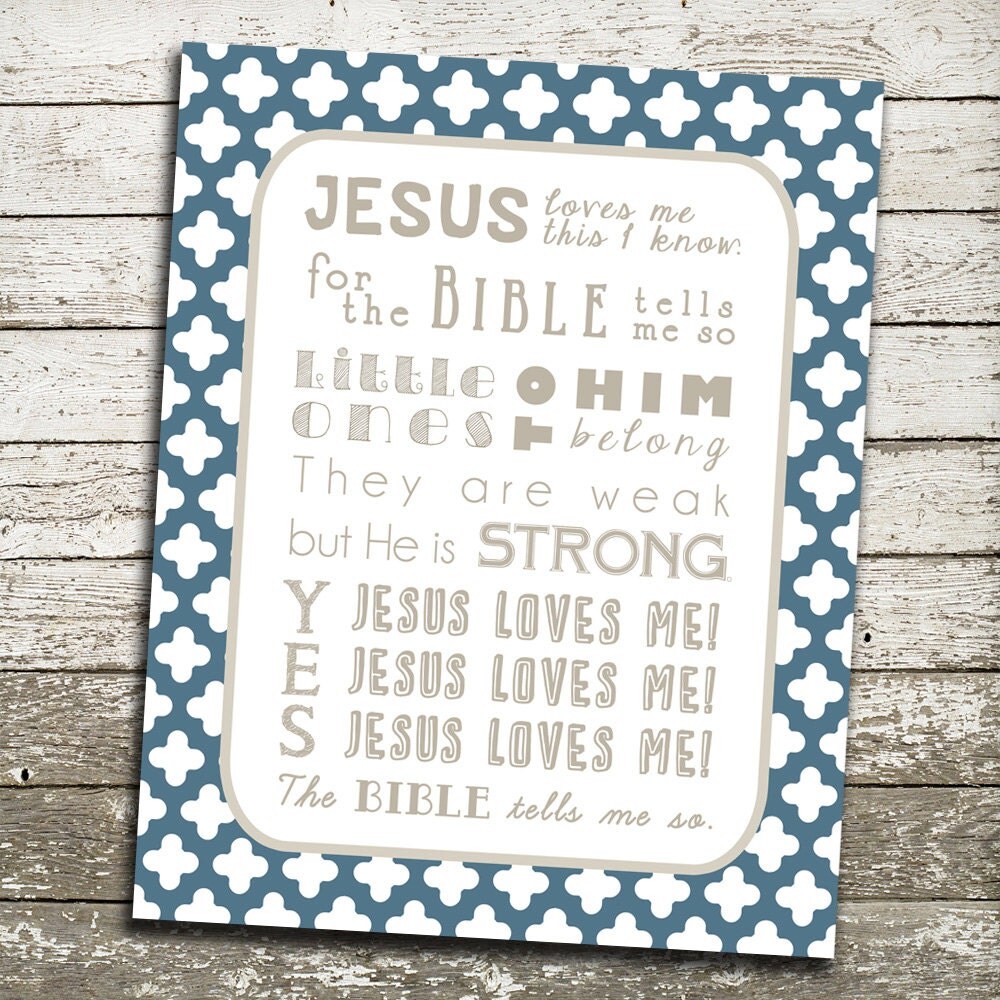 JESUS loves me this I know.
for the BIBLE tells me so
Little ones TO HIM belong
They are weak
but He is STRONG
YES JESUS LOVES ME!
JESUS LOVES ME!
JESUS LOVES ME!
The BIBLE tells me so.